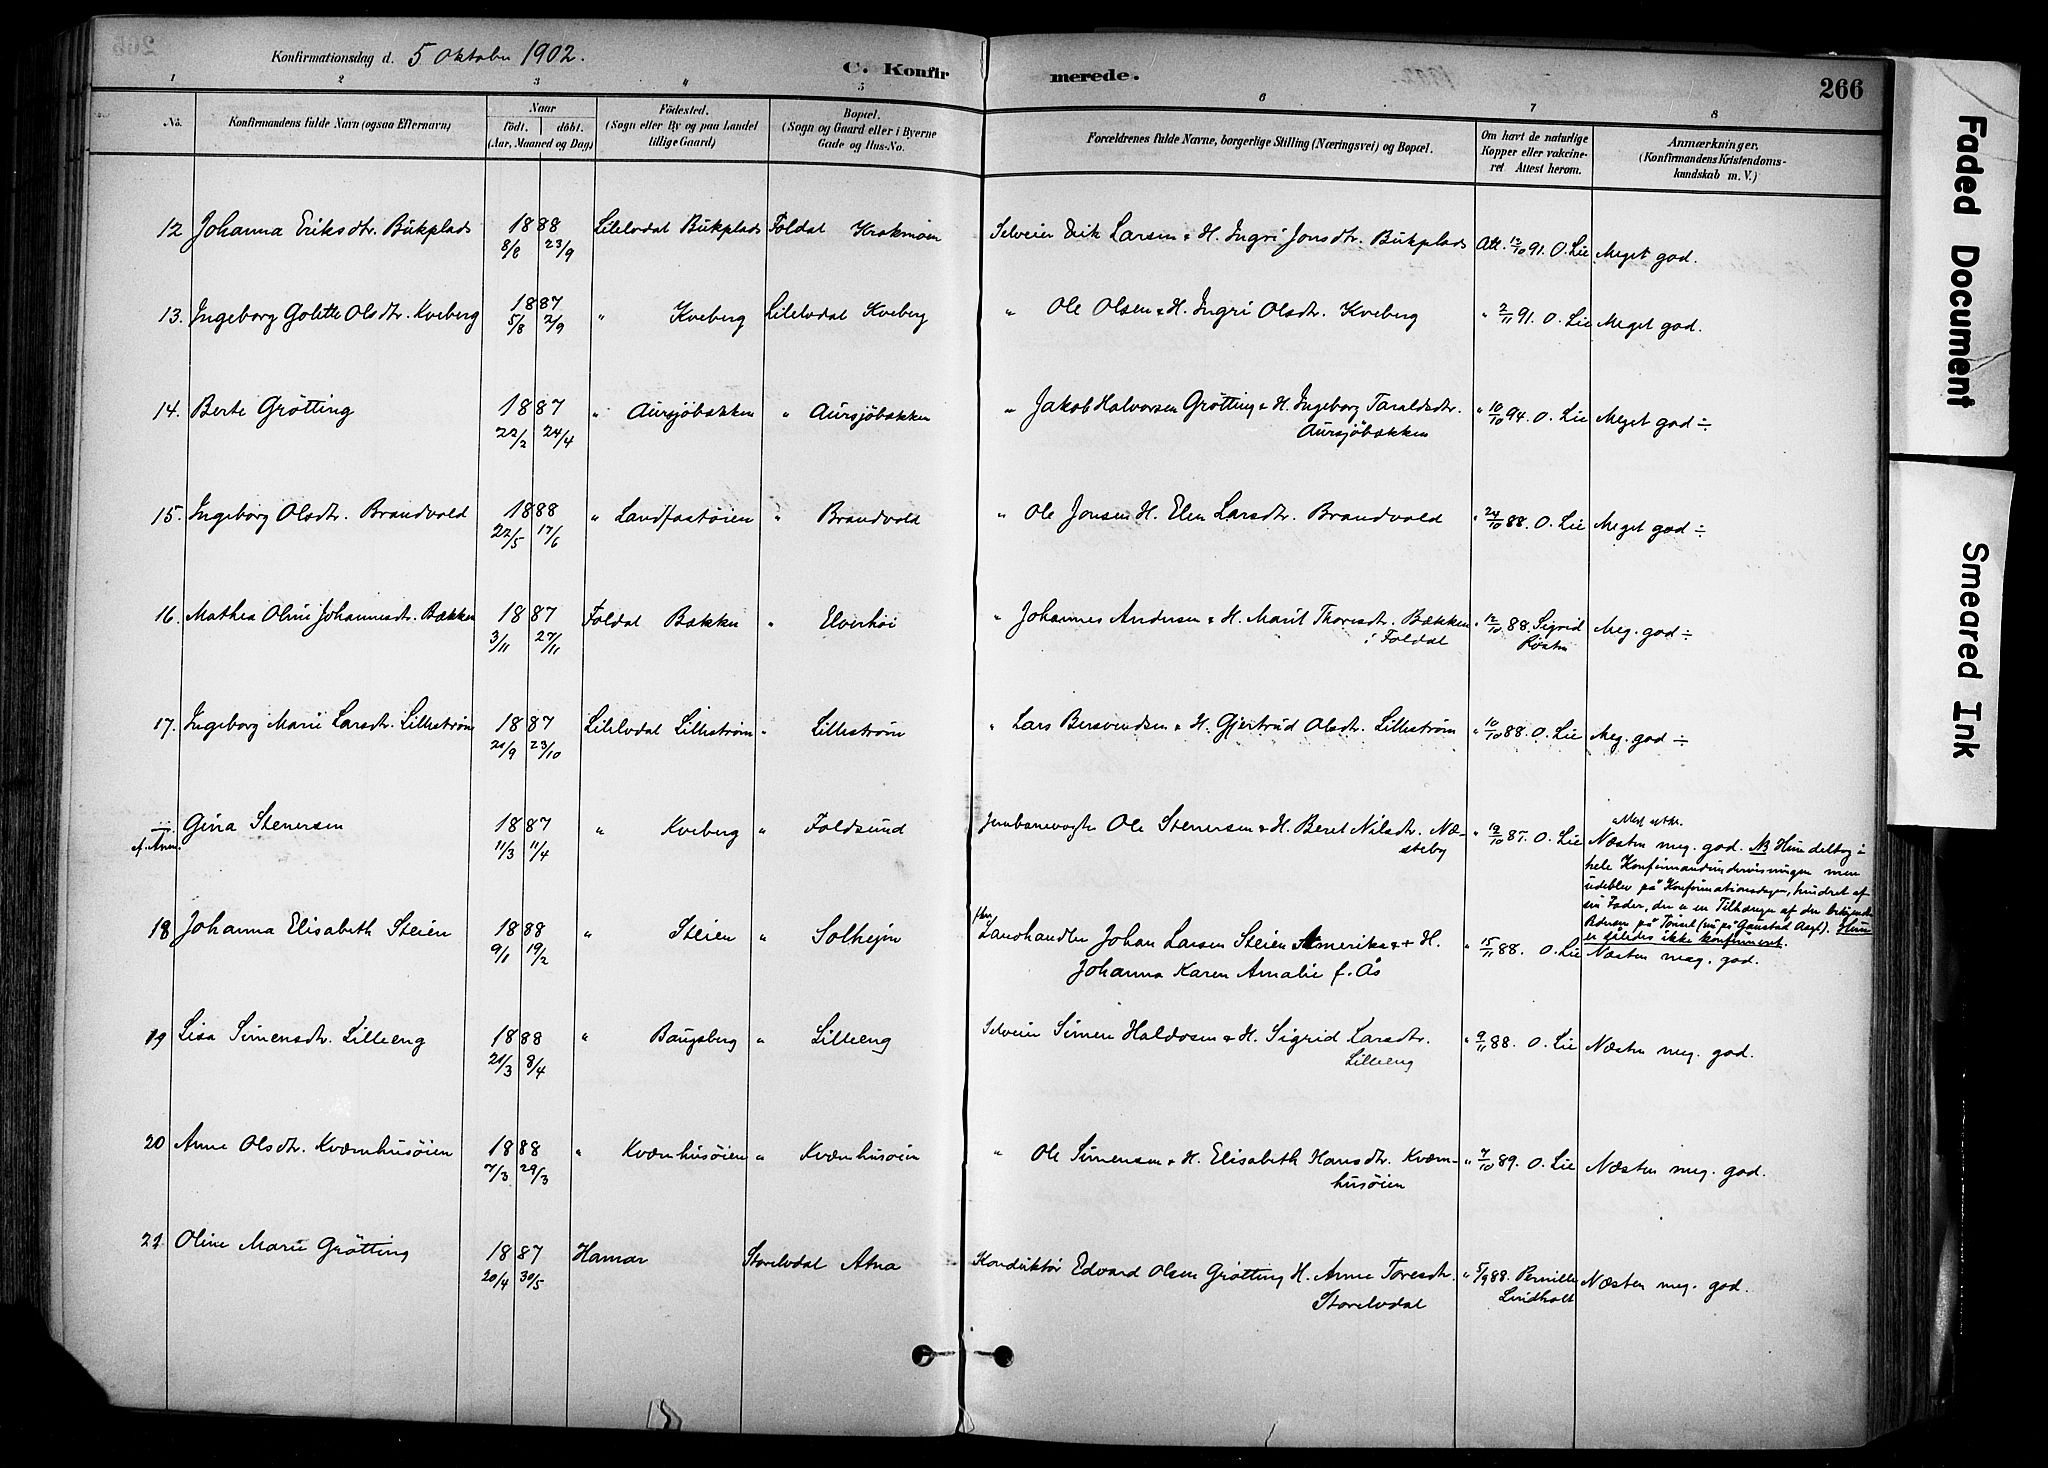 Konfirmationsdag d. 5 Oktober 1902.
C. Konfir merede. 266
1 2 3 " 5 6 7 8
No. Konfirmandens fulde Navn (ogsaa Efternavn) Naar födt. döbt. (Aar, Maaned og Dag) Födested. (Sogn eller By og paa Landet tillige Gaard) Bopæl. (Sogn og Gaard eller i Byerne Gade og Hus-No. Forældrenes fulde Navne, borgerlige Stilling (Næringsvei) og Bopæl. Om havt de naturlige Kopper eller vakcineret Attest herom. Anmærkninger. (Konfirmandens Kristendomskundskab m. V.)
12 Johanna Eriksdtr. Bukplads 1888 8/8 23/9 Lilelvdal Bukplads Foldal Krokmoen Selveier Erik Larsen & H. Ingri Jonsdtr. Bukplads Att. 12/10 91. O. Lie Meget god.
13. Ingeborg Golette Olsdtr. Kveberg 1887 5/8 2/9 " Kveberg Lilelvdal Kveberg " Ole Olsen & H. Ingri Olsdtr. Kveberg " 2/11 91. O. Lie Meget god.
14. Berte Grötting 1887 22/2 24/4 " Aursjöbækken " Aursjöbækken " Jakob Halvorsen Grötting & H. Ingeborg Taraldsdtr. " 10/10 94. O. Lie Meget god ÷
Aursjöbækken
15. Ingeborg Olsdtr. Brandvold 1888 22/5 17/6 " Landfastöien " Brandvold " Ole Jonsen H. Elen Larsdtr. Brandvold " 24/10 88. O. Lie Meget god ÷
16. Mathea Oline Johannesdtr. Bækken 1887 3/11 27/11 Foldal Bækken " Elvehöi " Johannes Andersen & H. Marit Thoresdtr. Bækken " 12/10 88. Sigrid Meg. god ÷
i Foldal Røsten
17. Ingeborg Marie Larsdtr. Lilleström 1887 21/9 23/10 Lilelvdal Lilleström " Lilleström " Lars Bersvendsen & H. Gjertrud Olsdtr. Lilleström " 10/10 88. O. Lie Meg. god ÷
÷ Gina Stenersen 1887 11/3 11/4 " Kveberg " Foldsund Jernbanevogter Ole Stenersen & H. Beret Nilsdtr. Næ- " 12/10 87. O. Lie Næsten meg. god. NB Hun deltog i
cf. Anm. steby hele Konfirmandundervisningen men
udeblev på Konfirmationsdagen, hindret af
sin Fader, der er en Tilhænger af den bekjendte
på Tönset (nu på Gaustad Asyl). Hun
er således ikke konfirmeret.
18 Johanna Elisabeth Steien 1888 9/1 19/2 " Steien " Solhejm fhv. Landhandler Johan Larsen Steien Amerika & + H. " 15/11 88. O. Lie Næsten meg. god.
Johanna Karen Amalie f. Ås
19 Lisa Simensdtr. Lilleeng 1888 21/3 8/4 " Baugsberg " Lilleeng Selveier Simen Haldosen & H. Sigrid Larsdtr. " 9/11 88. O. Lie Næsten meg. god.
Lilleeng
20 Anne Olsdtr. Kværnhusöien 1888 7/3 29/3 " Kværnhusöien " Kværnhusöien " Ole Simensen & H. Elisabeth Hansdtr. Kværn- " 7/10 89. O. Lie Næsten meg. god.
husöien
21 Oline Marie Grötting 1887 20/4 30/5 Hamar Storelvdal Atna Konduktör Edvard Olsen Grötting H. Anne Toresdtr. " 5/9 88. Pernille Næsten meg. god.
Storelvdal Lindholt
Faded Document
Smeared Ink